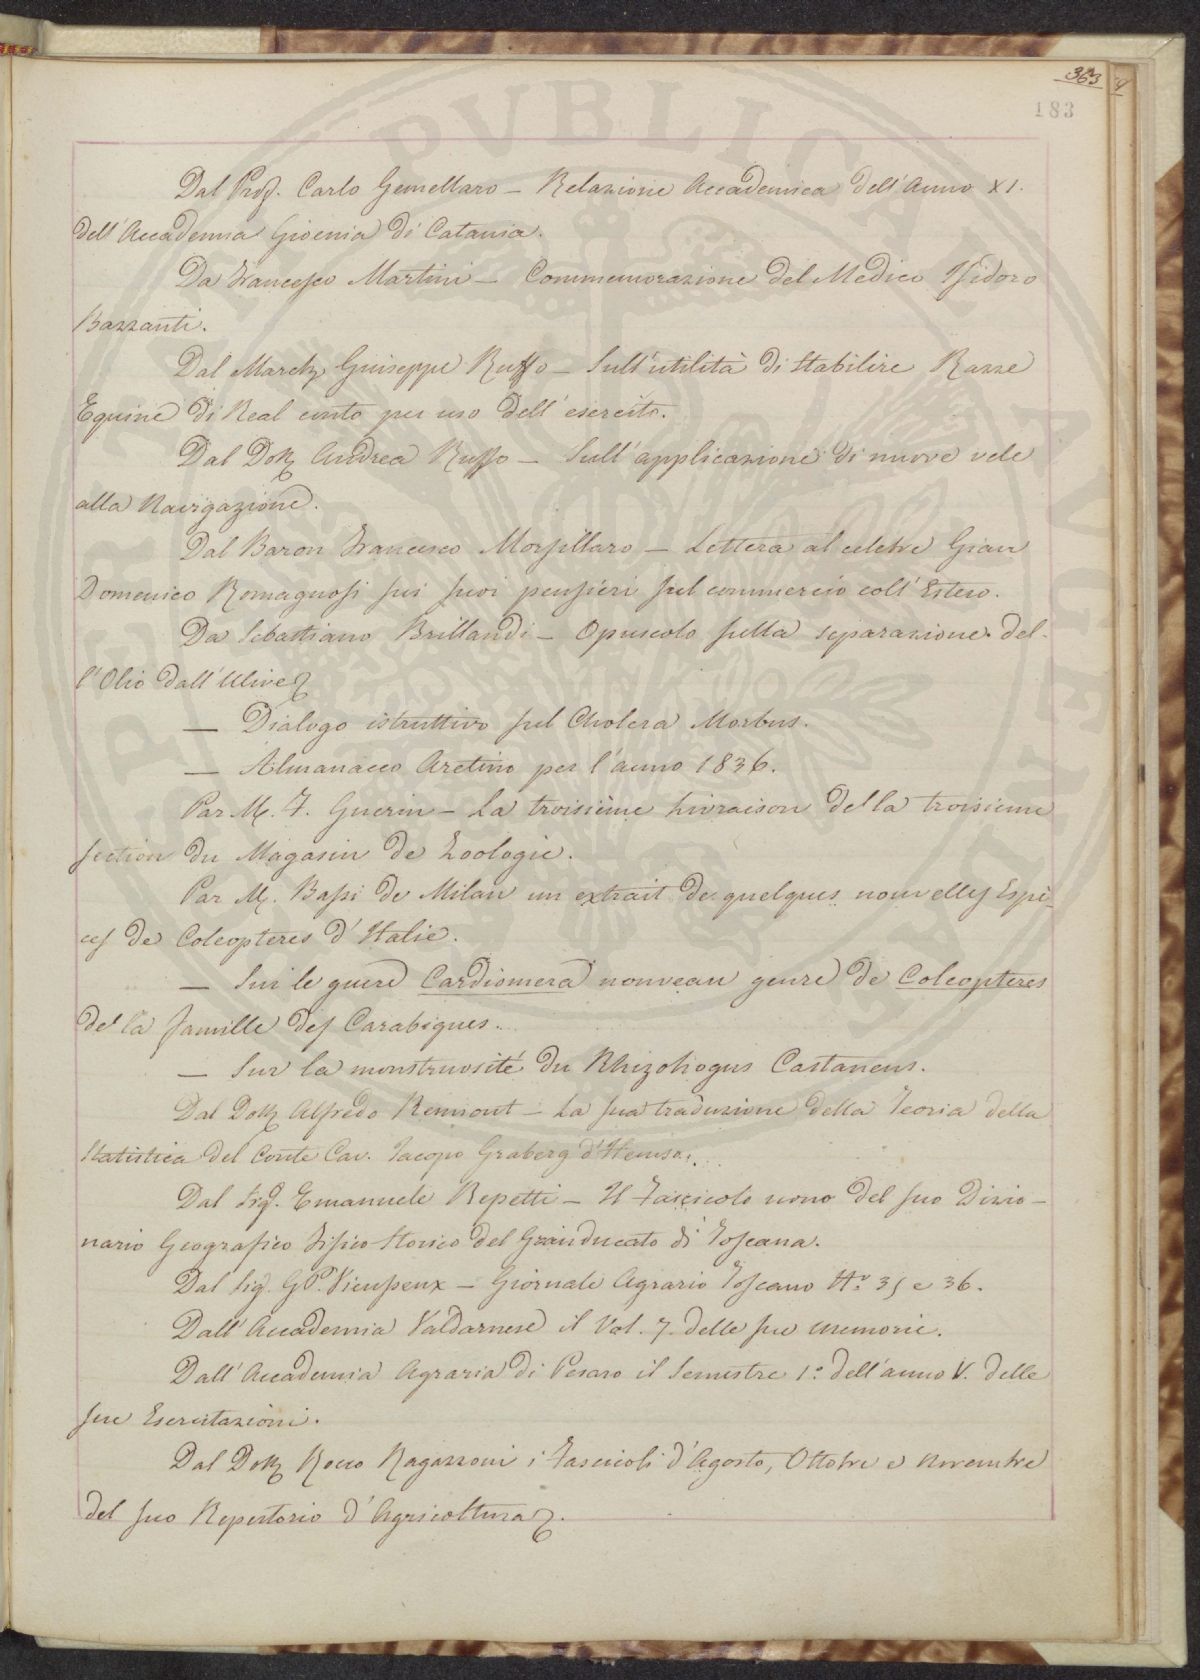 363
183
Dal Prof. Carlo Gemellaro – Relazione Accademica dell'Anno XI.
dell'Accademia Gioenia di Catania.
Da Francesco Martini – Commemorazione del Medico Isidoro
Bazzanti.
Dal March. Guiseppe Ruffo – Sull'utilità di stabilire Razze
Equine di Real conto per uso dell'esercito.
Dal Dott. Andrea Ruffo – Sull'applicazione di nuove vele
alla Navigazione.
Dal Baron Francesco Morfillaro – Lettera al celebre Gian
Domenico Romagnosi sui suoi pensieri sul commercio coll'Estero.
Da Sebastiano Brillandi – Opuscolo sulla separazione del-
l'Olio dall'Ulive
— Dialogo istruttivo sul Cholera Morbus.
— Almanacco Aretino per l'anno 1836.
Par M. F. Guerin – La troisième Livraison de la troisieme
section du Magasin de Zoologie.
Par M. Bassi de Milan un extrait de quelques nouvelles Espè-
ces de Coleopteres d'Italie.
— Sur le guere Cardiomera nouveau genre de Coleopteres
de la famille des Carabiques.
— Sur la monstruosité du Rhizotrogus Castaneus.
Dal Dott. Alfredo Reumont – La sua traduzione della Teoria della
Statistica del Conte Cav. Jacopo Graberg d'Hemso.
Dal Sig. Emanuele Repetti – Il Fascicolo nono del suo Dizio-
nario Geografico Fisico Storico del Granducato di Toscana.
Dal Sig. G. P. Vieusseux – Giornale Agrario Toscano N.º 35 e 36.
Dall'Accademia Valdarnese il Vol. 7. delle sue memorie.
Dall'Accademia Agraria di Pesaro il Semestre 1.º dell'anno V. delle
sue Esercitazioni.
Dal Dott. Rocco Ragazzoni i Fascicoli d'Agosto, Ottobre e Novembre
del suo Repertorio d'Agricoltura.